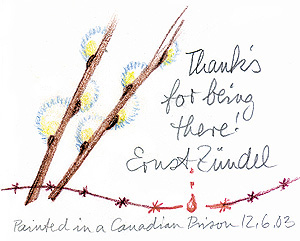 Thank's
for being
there!
Ernst Zündel
Painted in a Canadian Prison 12.6.03